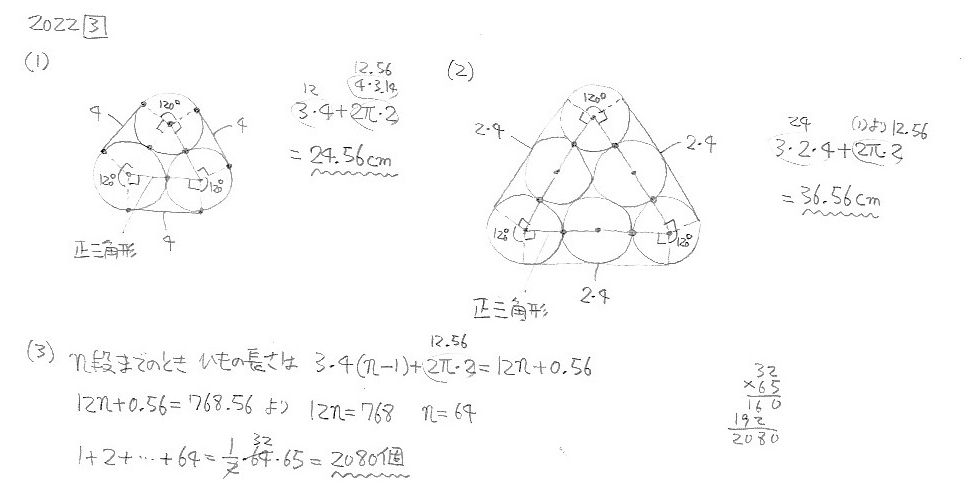 2022 3
(1)
4
120°
4
120°
120°
4
正三角形
12 12.56
4·3.14
3·4+2π·2
= 24.56cm
(2)
120°
2·4
2·4
120°
120°
2·4
正三角形
24 (1)より12.56
3·2·4+2π·2
= 36.56cm
(3) n段までのとき ひもの長さは 3·4(n-1)+2π·2=12n+0.56
12.56
12n+0.56=768.56 より 12n=768 n=64
1+2+…+64=1/2·64·65=2080個
32
32
×65
160
192
2080